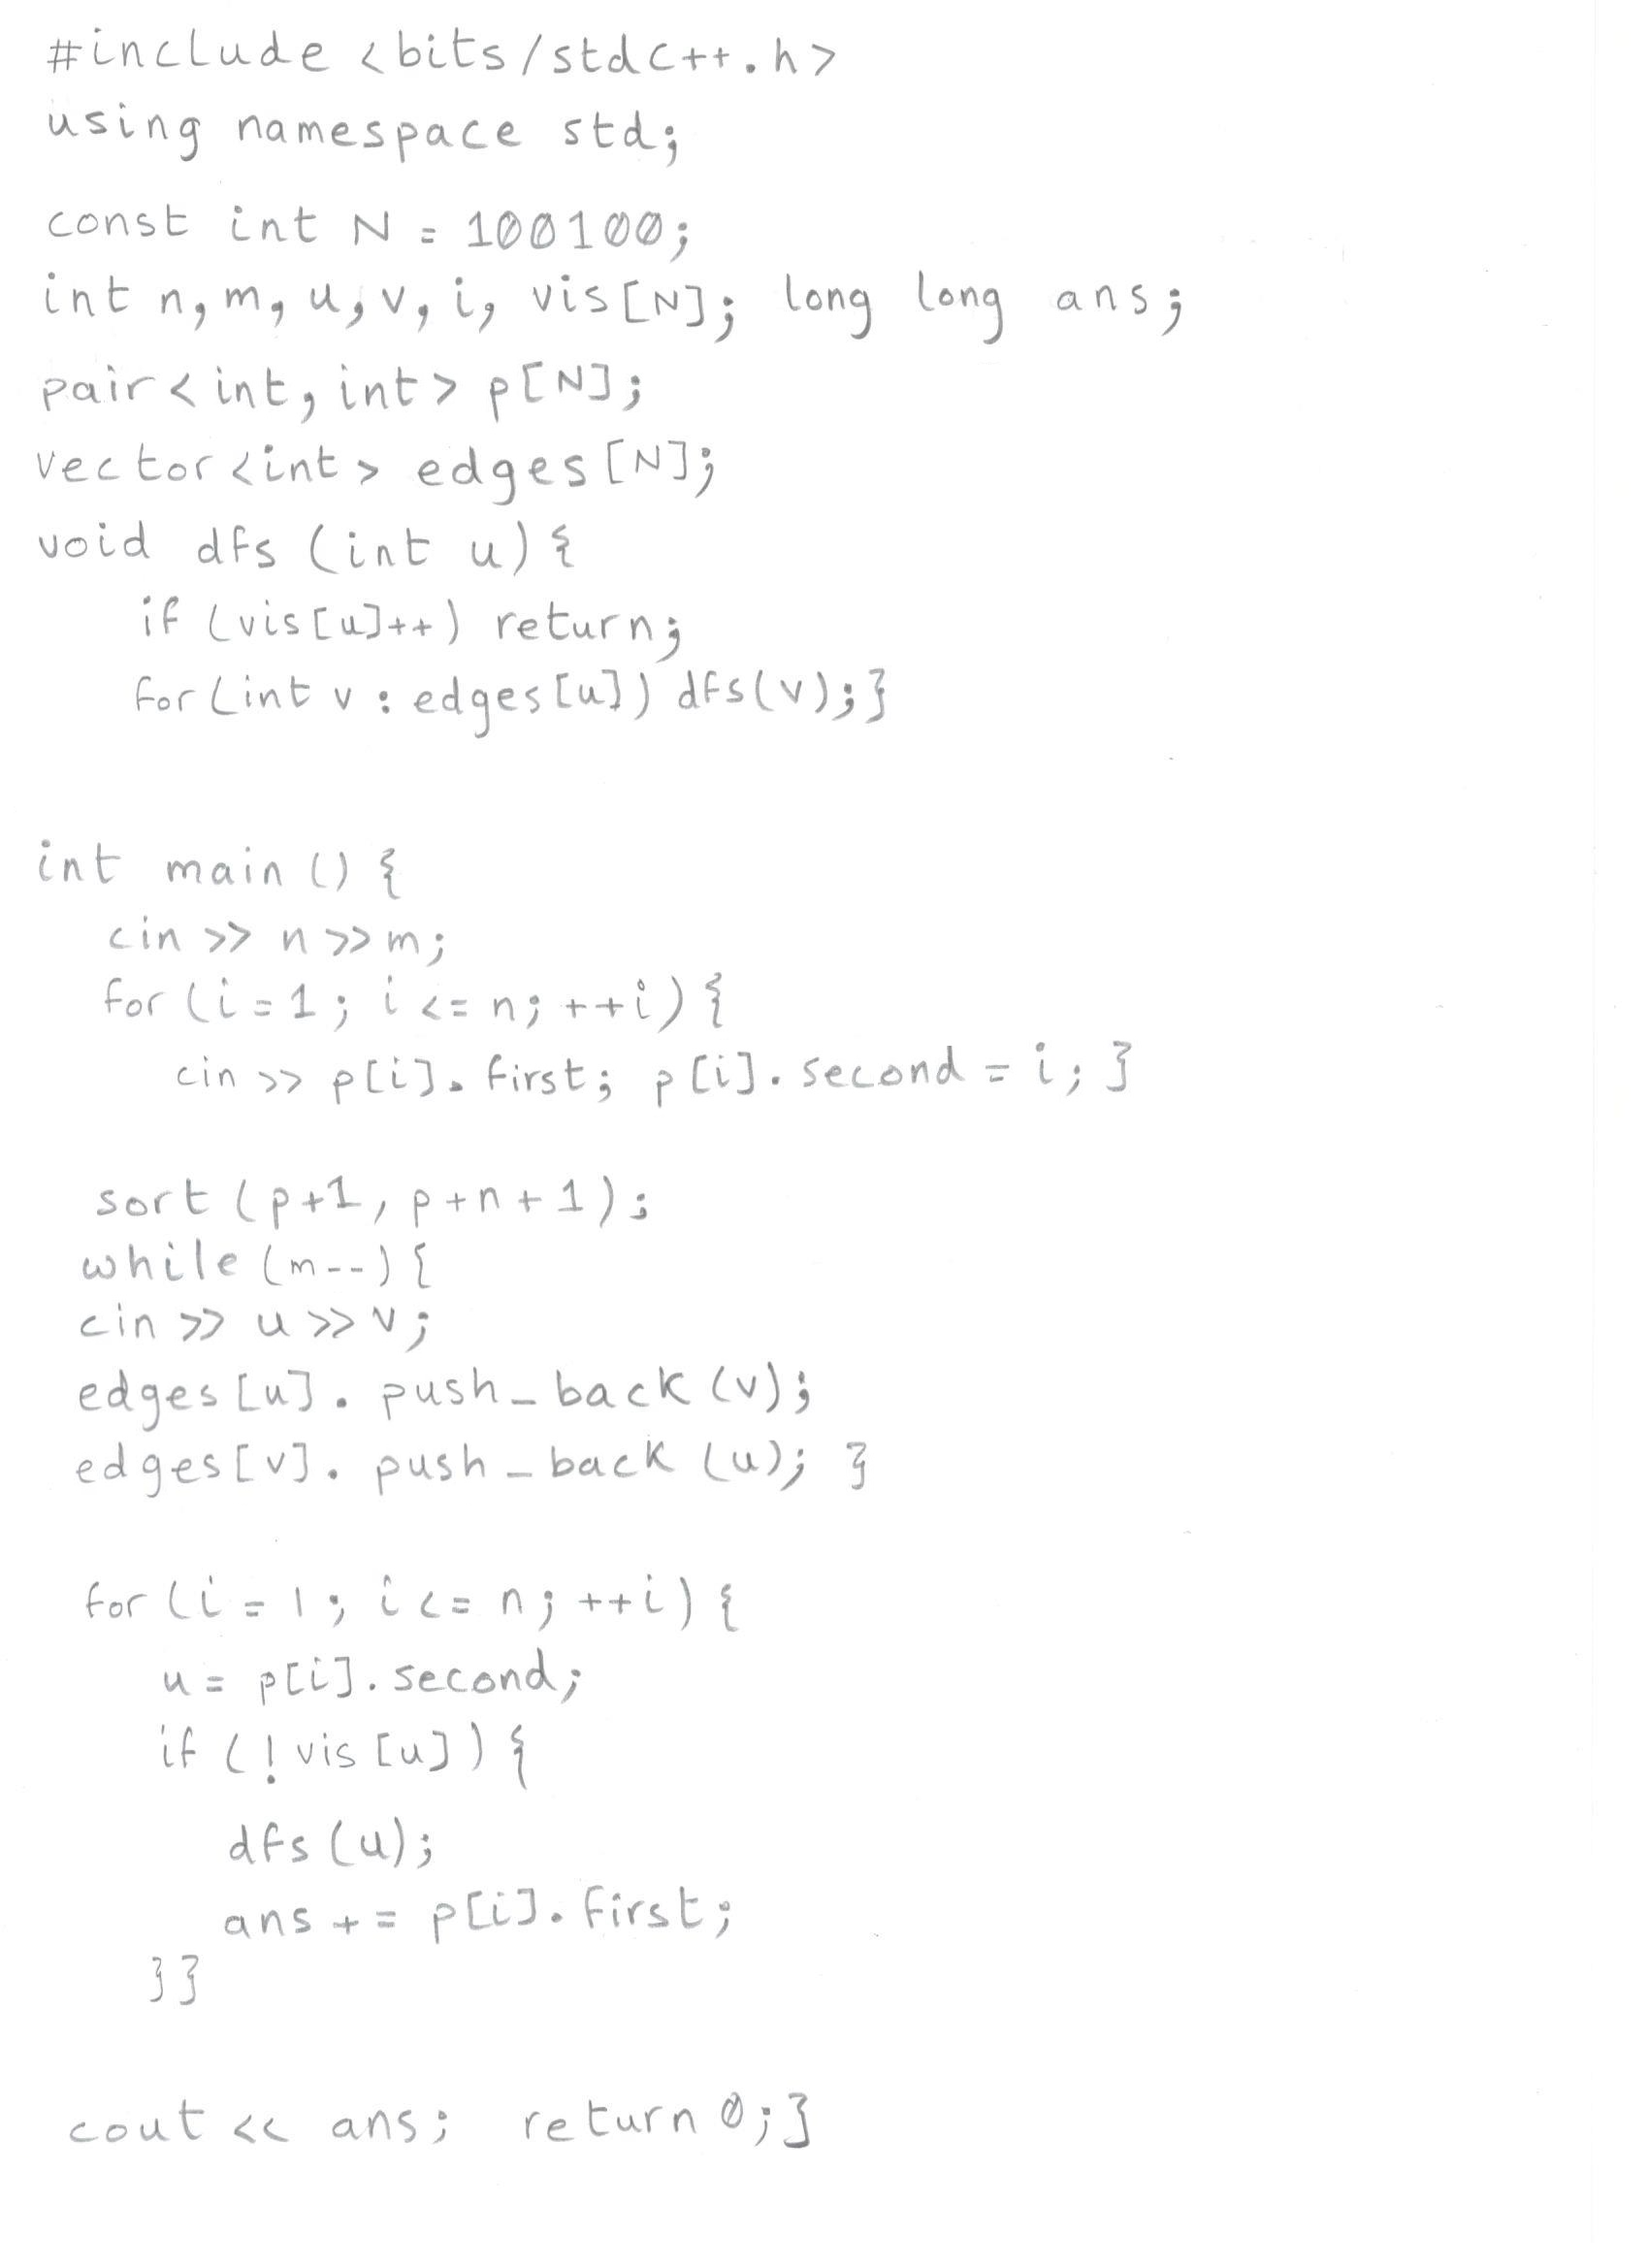 #include <bits/stdc++.h>
using namespace std;
const int N = 100100;
int n, m, u, v, i, vis[N]; long long ans;
pair<int, int> p[N];
vector<int> edges[N];
void dfs (int u) {
if (vis[u]++) return;
for (int v : edges[u]) dfs(v);}
int main () {
cin >> n >> m;
for (i = 1; i <= n; ++i) {
cin >> p[i].first; p[i].second = i; }
sort (p+1, p+n+1);
while (m--) {
cin >> u >> v;
edges[u].push_back (v);
edges[v].push_back (u); }
for (i = 1; i <= n; ++i) {
u = p[i].second;
if (!vis[u]) {
dfs (u);
ans += p[i].first;
}}
cout << ans; return 0;}